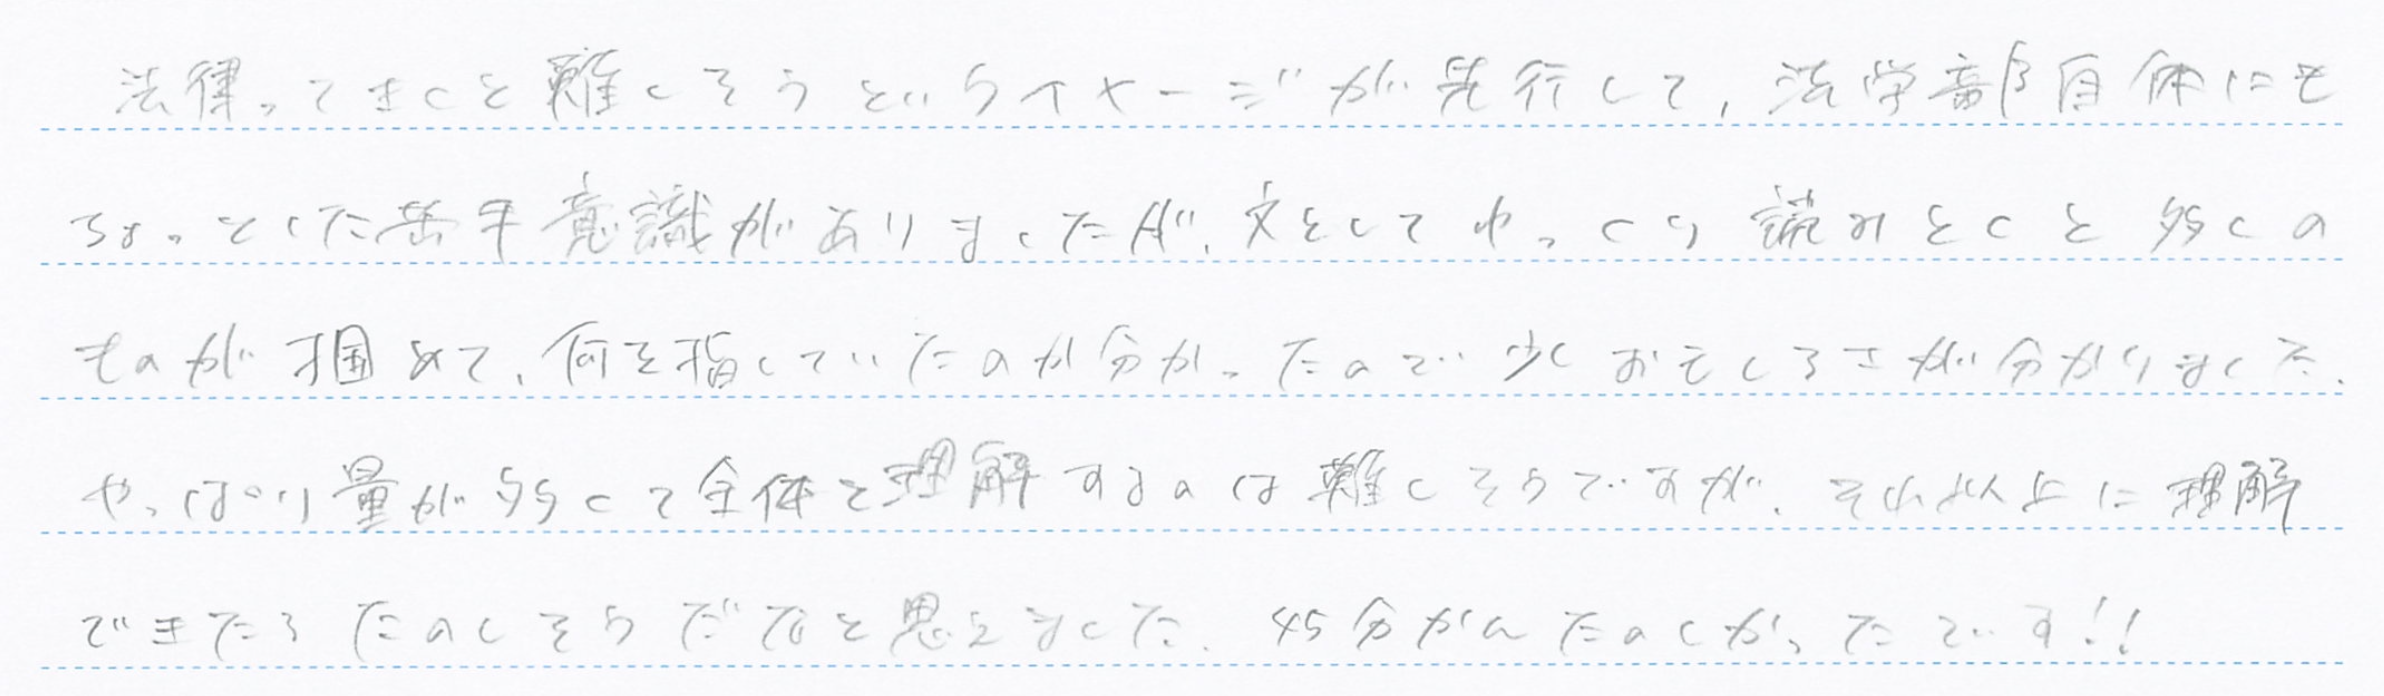 法律ってきくと難しそうというイメージが先行して、法学部自体にも
ちょっとした苦手意識がありましたが、文としてゆっくり読みとくと多くの
ものが掴めて、何を指していたのか分かったので少しおもしろさが分かりました。
やっぱり量が多くて全体を理解するのは難しそうですが、それ以上に理解
できたらたのしそうだなと思えました。45分かんたのしかったです!!